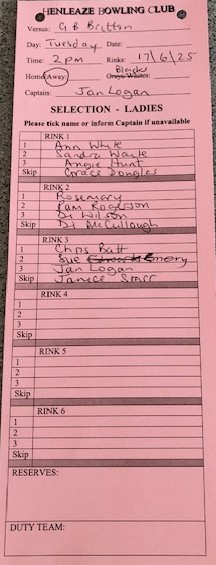 HENLEAZE BOWLING CLUB
Versus: G B Britton
Day: Tuesday Date:
Time: 2pm Rinks: 17/6/25
Home/Away: Blazer Greys/Whites:
Captain: Jan Logan
SELECTION - LADIES
Please tick name or inform Captain if unavailable
RINK 1
1 Ann White
2 Sandra Wayle
3 Angie Hunt
Skip Grace Douglas
RINK 2
1 Rosemary
2 Pam Rogerson
3 Di Wilson
Skip Di McCullough
RINK 3
1 Chris Batt
2 Sue Emery
3 Jan Logan
Skip Janice Starr
RINK 4
1
2
3
Skip
RINK 5
1
2
3
Skip
RINK 6
1
2
3
Skip
RESERVES:
DUTY TEAM: